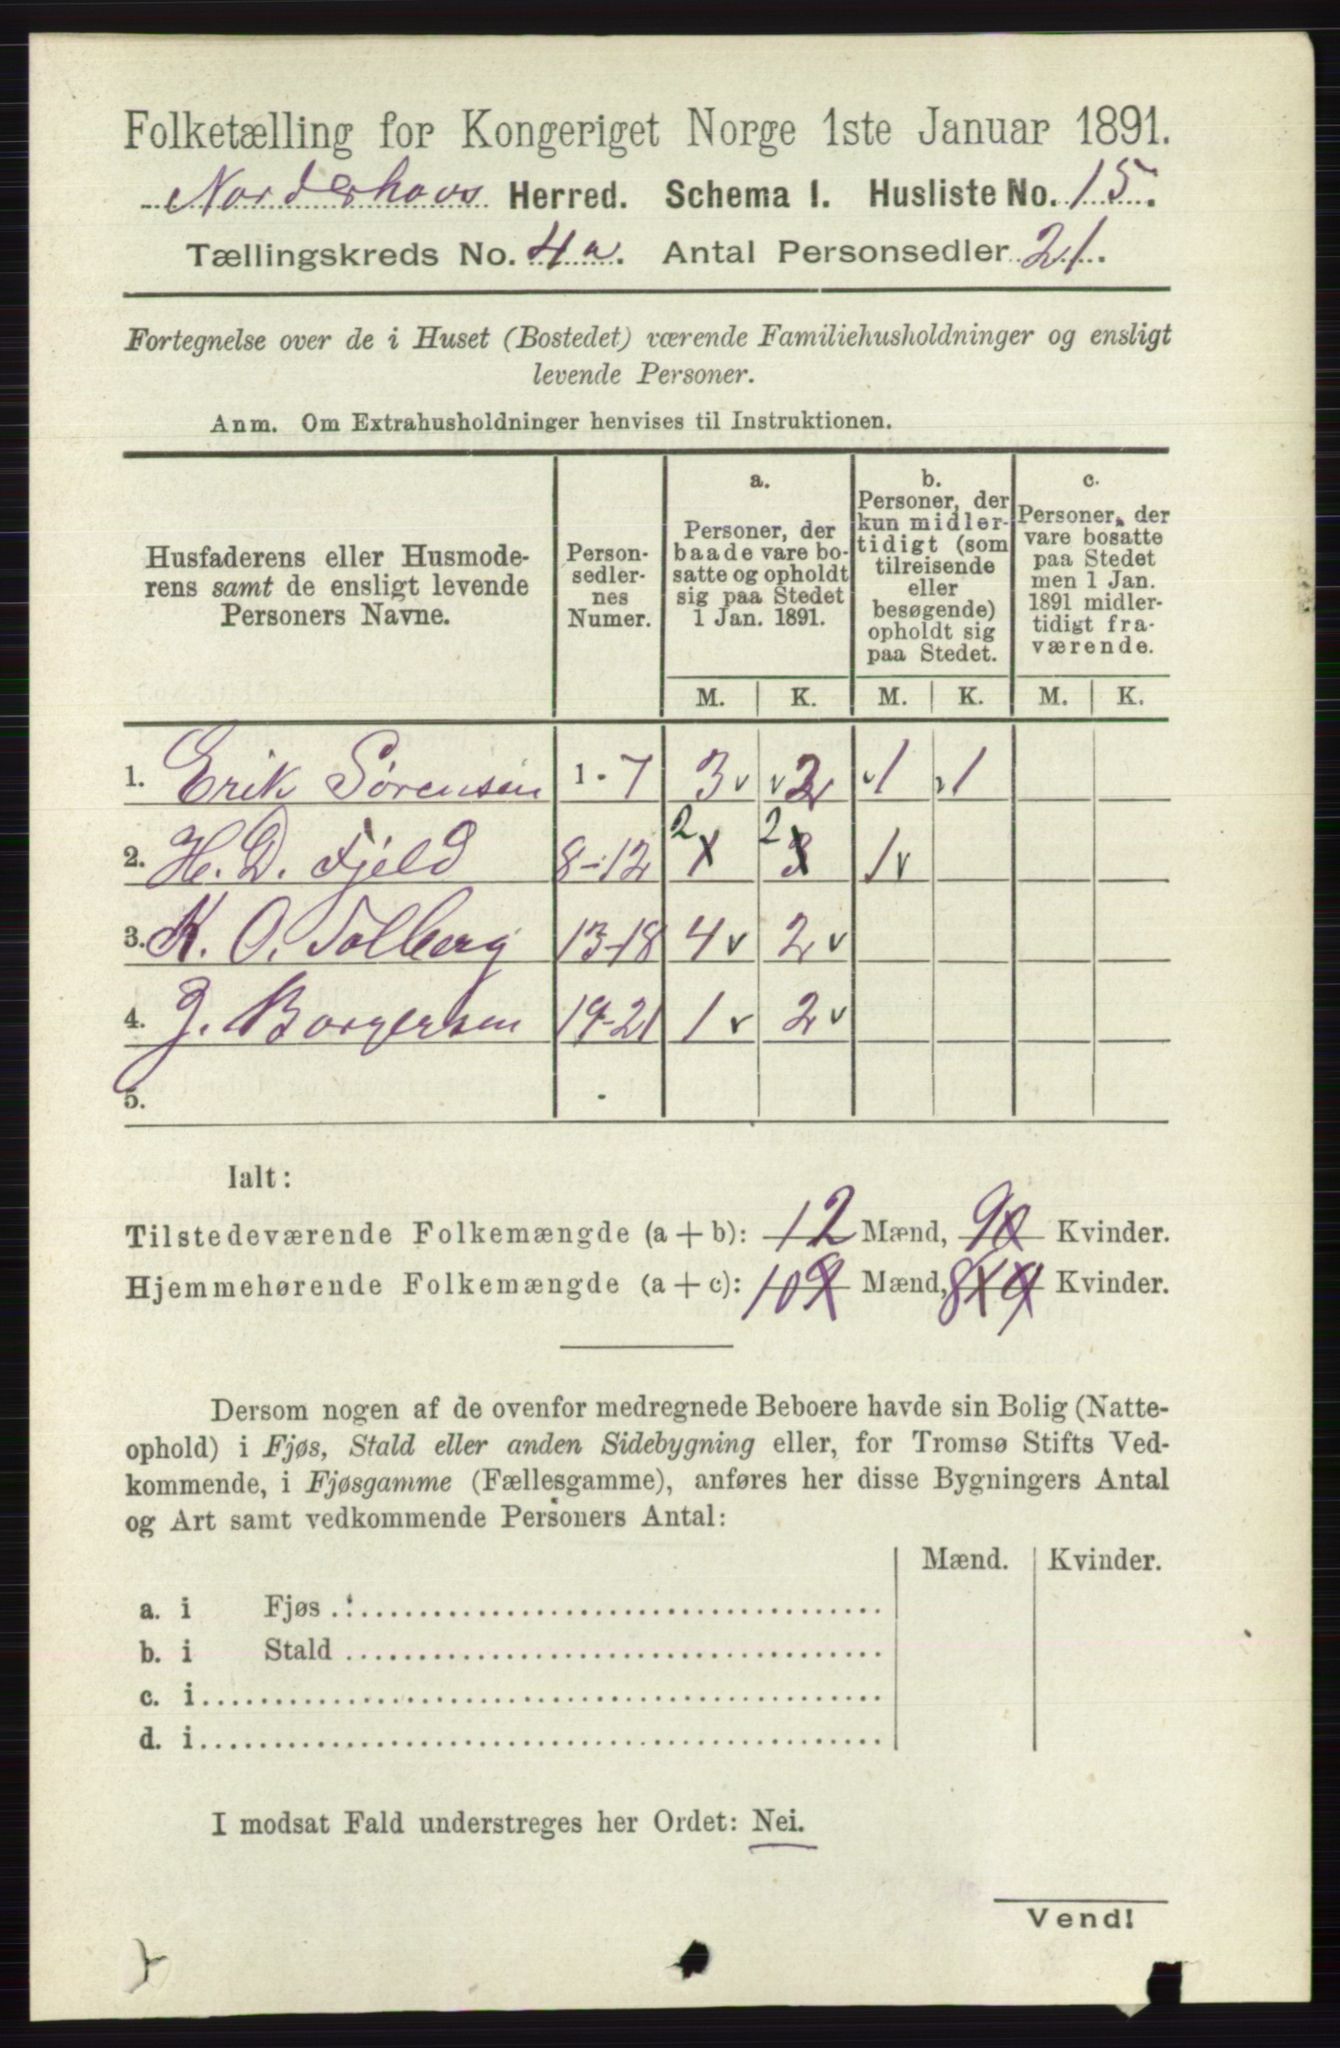 Folketælling for Kongeriget Norge 1ste Januar 1891.
Norderhovs Herred. Schema I. Husliste No. 15.
Tællingskreds No. 4a. Antal Personsedler 21.
Fortegnelse over de i Huset (Bostedet) værende Familiehusholdninger og ensligt
levende Personer.
Anm. Om Extrahusholdninger henvises til Instruktionen.
Husfaderens eller Husmode-
rens samt de ensligt levende
Personers Navne.
Person-
sedler-
nes
Numer.
a.
Personer, der
baade vare bo-
satte og opholdt
sig paa Stedet
1 Jan. 1891.
b.
Personer, der
kun midler-
tidigt (som
tilreisende
eller
besøgende)
opholdt sig
paa Stedet.
c.
Personer, der
vare bosatte
paa Stedet
men 1 Jan.
1891 midler-
tidigt fra-
værende.
M. K. M. K. M. K.
1. Erik Sørensen 1-7 3 v v 2 v 1 v 1
2. H. D. Fjeld 8-12 2 2 3 1 v
3. K. O. Solberg 13-18 4 v 2 v
4. J. Borgersen 19-21 1 v 2 v
5. -
Ialt:
Tilstedeværende Folkemængde (a + b): 12 Mænd, 9 Kvinder.
Hjemmehørende Folkemængde (a + c): 10 9 Mænd, 8 9 Kvinder.
Dersom nogen af de ovenfor medregnede Beboere havde sin Bolig (Natte-
ophold) i Fjøs, Stald eller anden Sidebygning eller, for Tromsø Stifts Ved-
kommende, i Fjøsgamme (Fællesgamme), anføres her disse Bygningers Antal
og Art samt vedkommende Personers Antal:
Mænd. Kvinder.
a. i Fjøs
b. i Stald
c. i
d. i
I modsat Fald understreges her Ordet: Nei.
Vend!